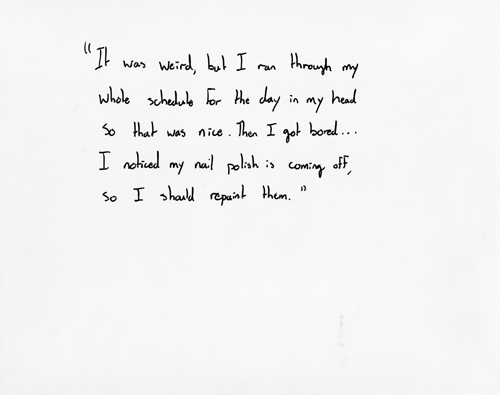 "It was weird, but I ran through my
whole schedule for the day in my head
so that was nice. Then I got bored...
I noticed my nail polish is coming off,
so I should repaint them."